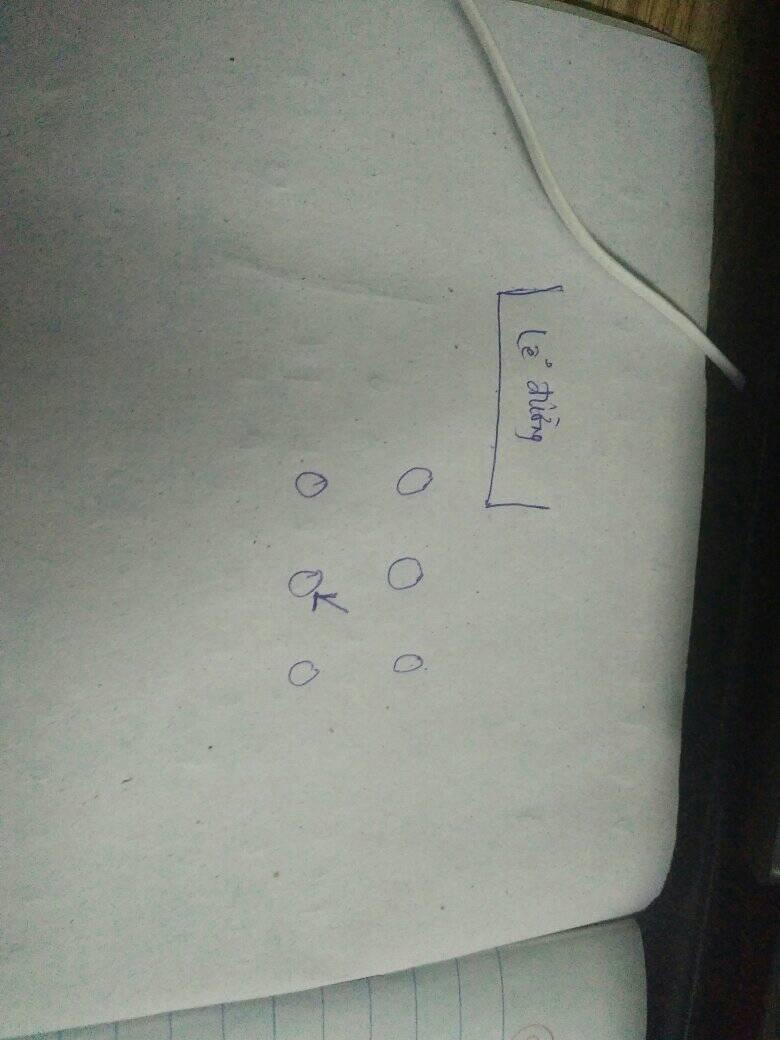 Lễ đường